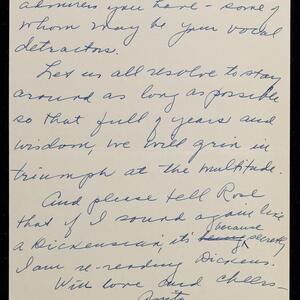 admirers you have - some of
whom may be your vocal
detractors.
Let us all resolve to stay
around as long as possible
so that full of years and
wisdom, we will grin in
triumph at the multitude.
And please tell Rose
that if I sound again like
a Dickensian, it's because secretly
I am re-reading Dickens.
With love and cheers -